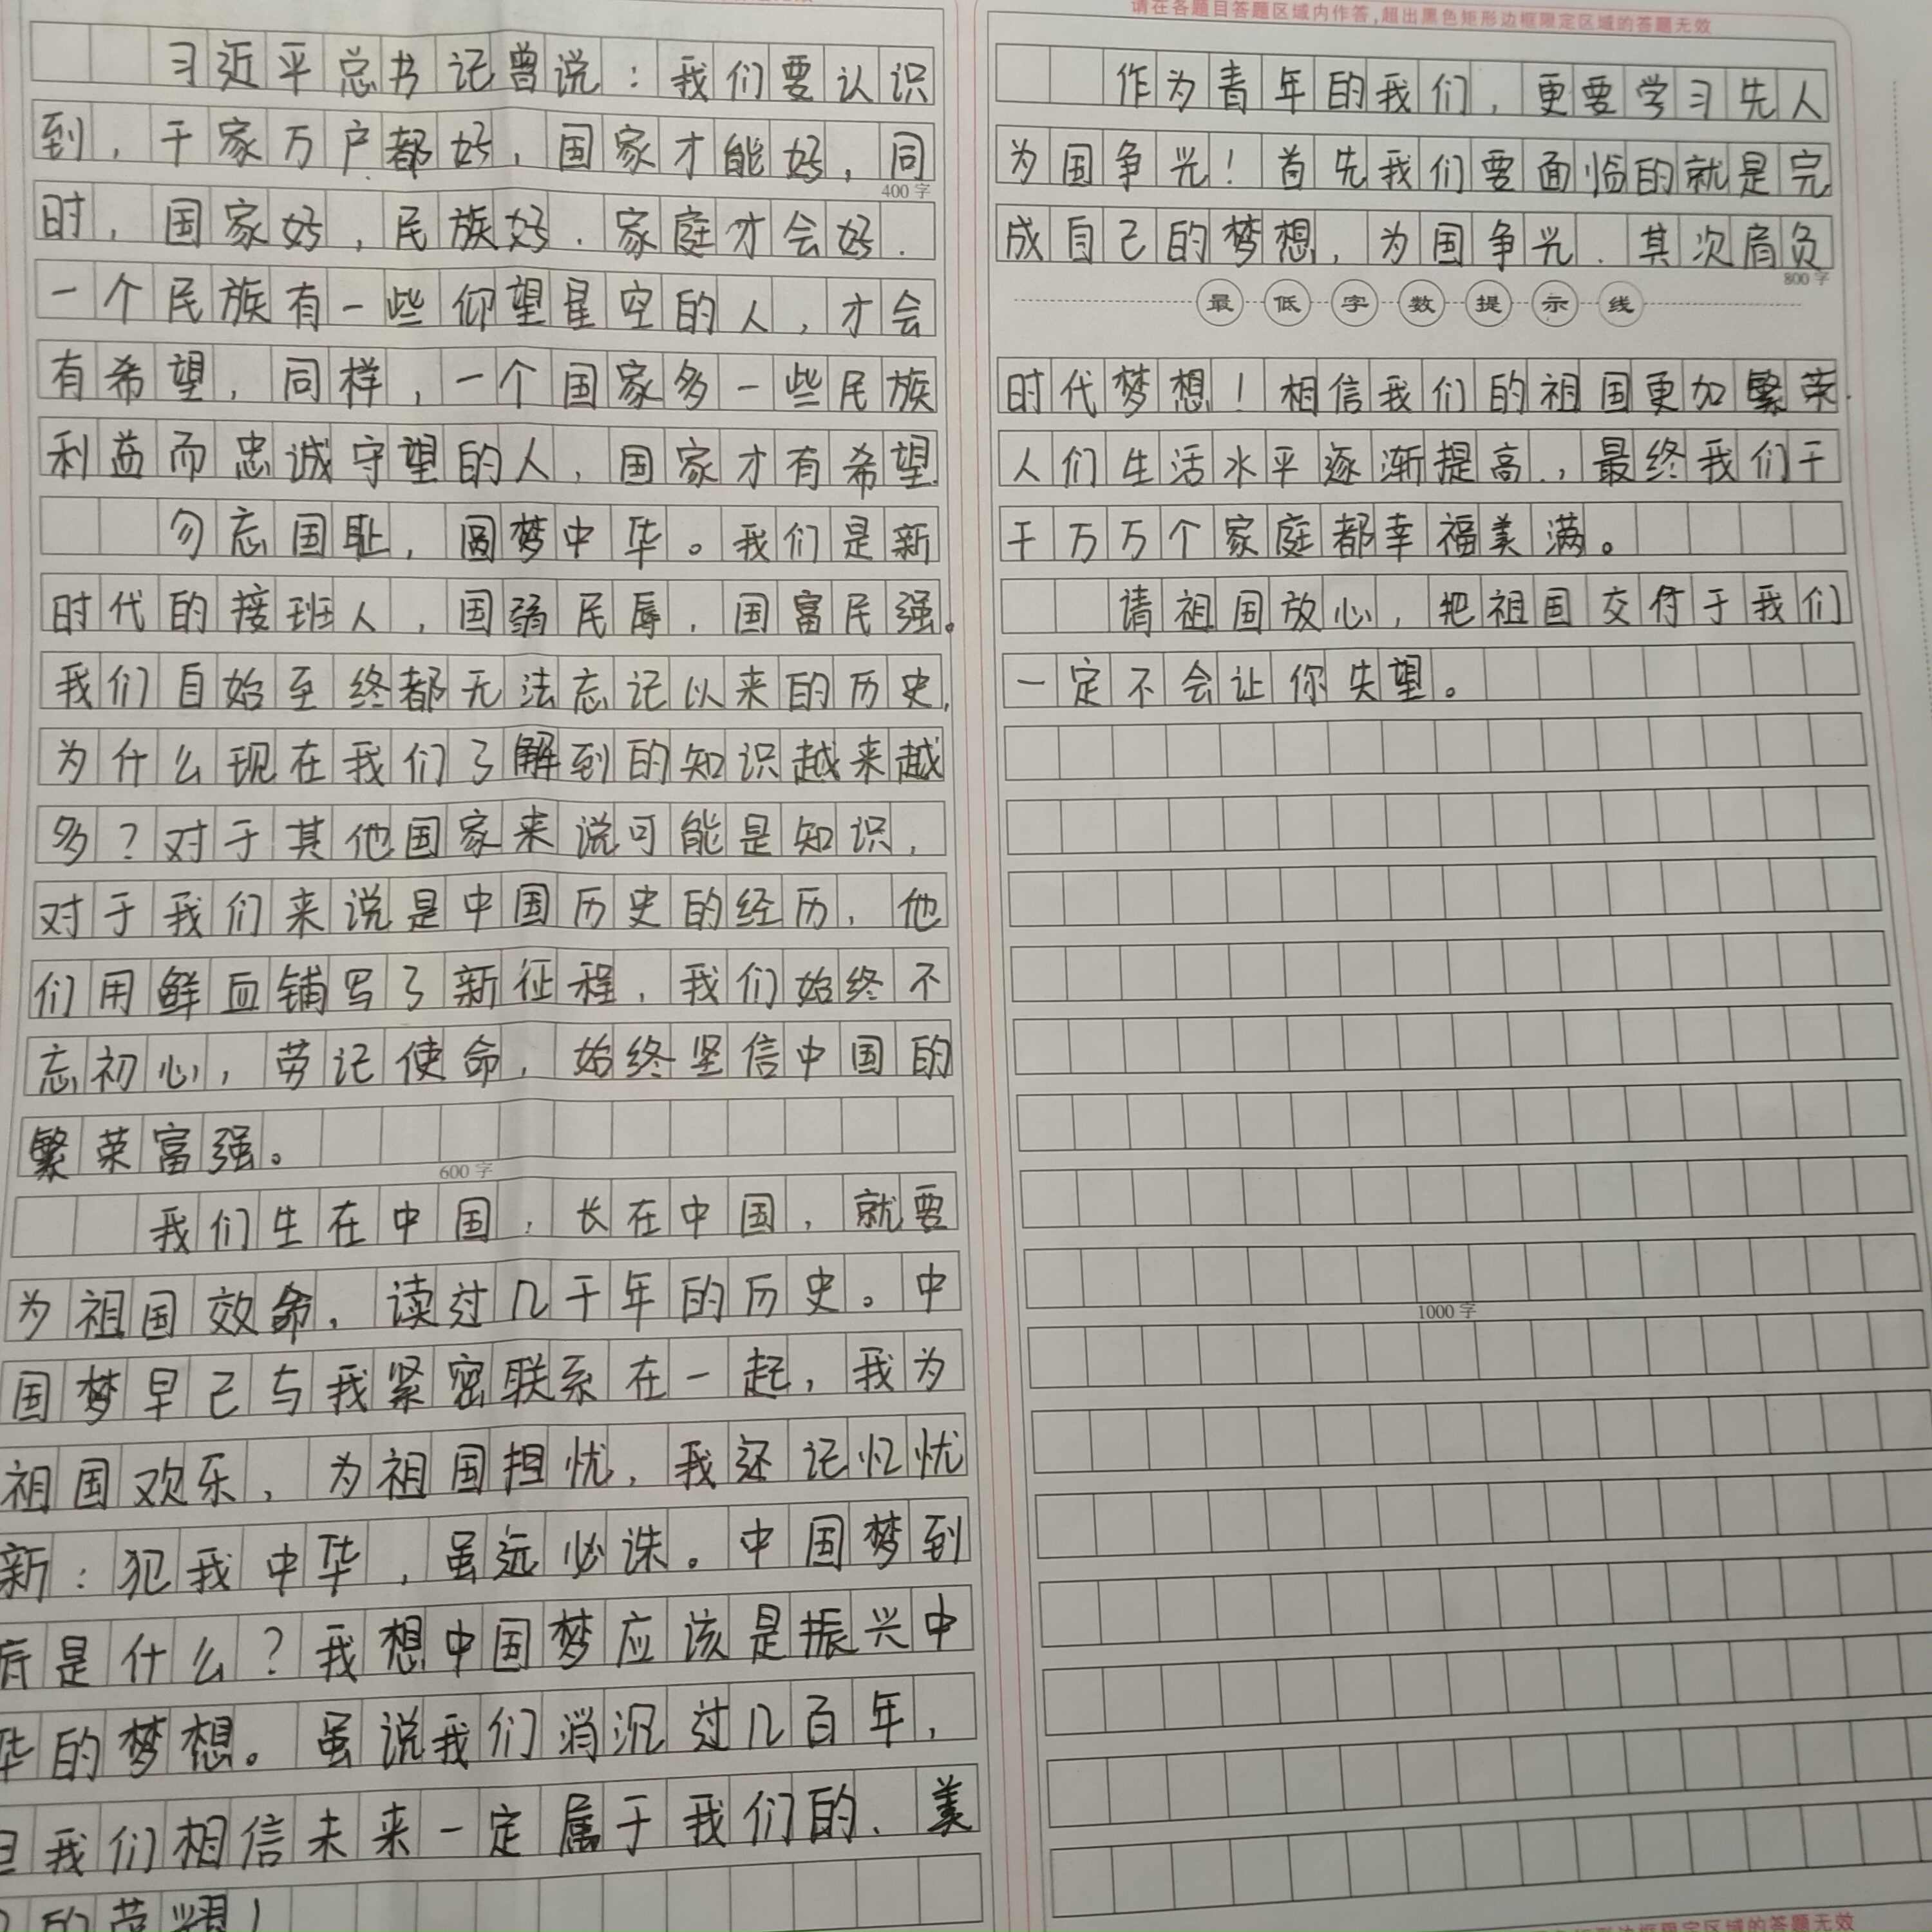 习近平总书记曾说：我们要认识
到，千家万户都好，国家才能好，同
400字
时，国家好，民族好．家庭才会好．
一个民族有一些仰望星空的人，才会
有希望，同样，一个国家多一些民族
利益而忠诚守望的人，国家才有希望．
勿忘国耻，圆梦中华。我们是新
时代的接班人，国弱民辱，国富民强。
我们自始至终都无法忘记以来的历史，
为什么现在我们了解到的知识越来越
多？对于其他国家来说可能是知识，
对于我们来说是中国历史的经历，他
们用鲜血铺写了新征程，我们始终不
忘初心，劳记使命，始终坚信中国的
繁荣富强。
600字
我们生在中国，长在中国，就要
为祖国效命，读过几千年的历史。中
国梦早已与我紧密联系在一起，我为
祖国欢乐，为祖国担忧，我还记忆忧
新：犯我中华，虽远必诛。中国梦到
底是什么？我想中国梦应该是振兴中
华的梦想。虽说我们消沉过几百年，
但我们相信未来一定属于我们的、美
的荣耀！
请在各题目答题区域内作答,超出黑色矩形边框限定区域的答题无效
作为青年的我们，更要学习先人
为国争光！首先我们要面临的就是完
成自己的梦想，为国争光．其次肩负
800字
最低字数提示线
时代梦想！相信我们的祖国更加繁荣．
人们生活水平逐渐提高．，最终我们千
千万万个家庭都幸福美满。
请祖国放心，把祖国交付于我们
一定不会让你失望。
1000字
矩形边框限定区域的答题无效